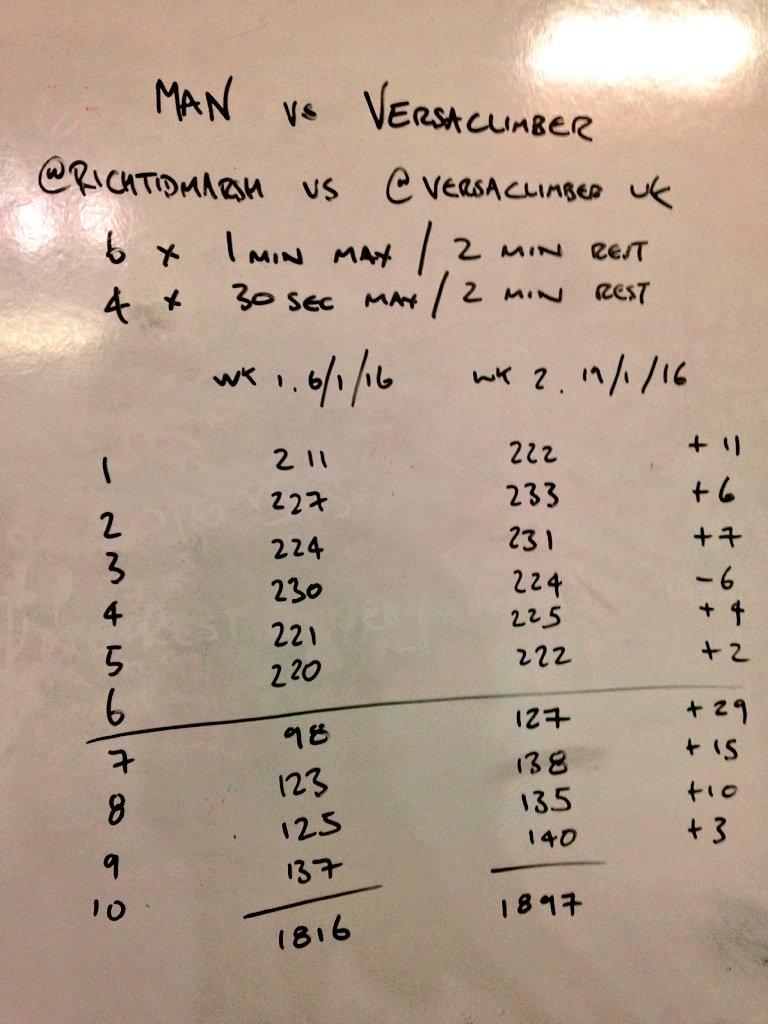 MAN vs VERSACLIMBER
@RICHTIDMARSH VS @VERSACLIMBER UK
6 x 1 MIN MAX / 2 MIN REST
4 x 30 SEC MAX / 2 MIN REST
WK 1. 6/1/16 WK 2. 19/1/16
1 211 222 +11
2 227 233 +6
3 224 231 +7
4 230 224 -6
5 221 225 +4
6 220 222 +2
7 98 127 +29
8 123 138 +15
9 125 135 +10
10 137 140 +3
1816 1897